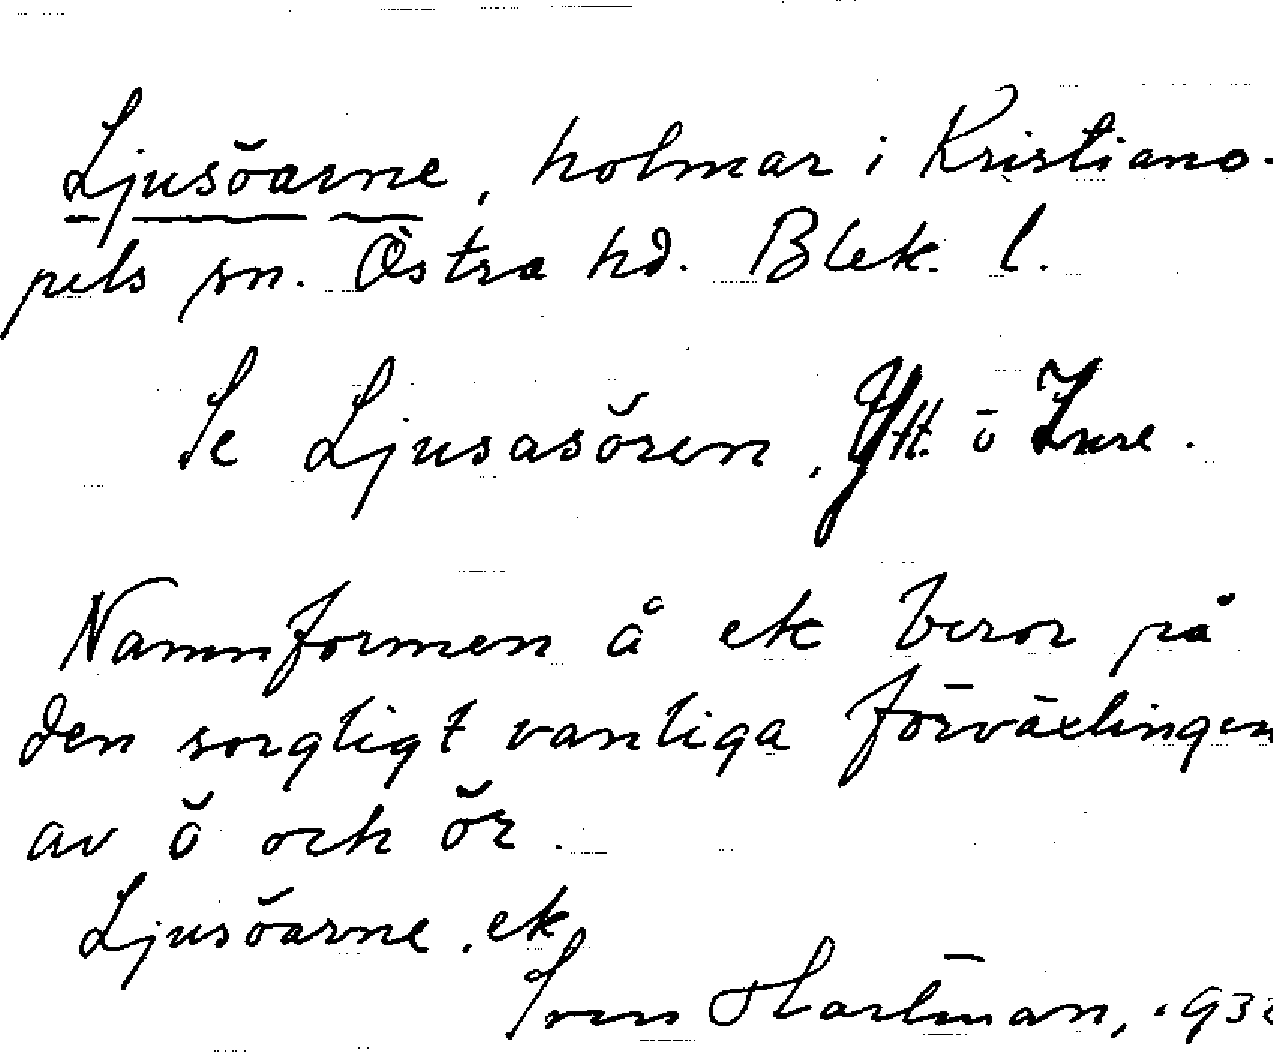 Ljusöarne, holmar i Kristiano-
pels sn. Östra hd. Blek. l.
Se Ljusasören, Ytt. o Inre.
Namnformen å ek beror på
den sorgligt vanliga förväxlingen
av ö och ör.
Ljusöarne, ek
Sven Hartman,